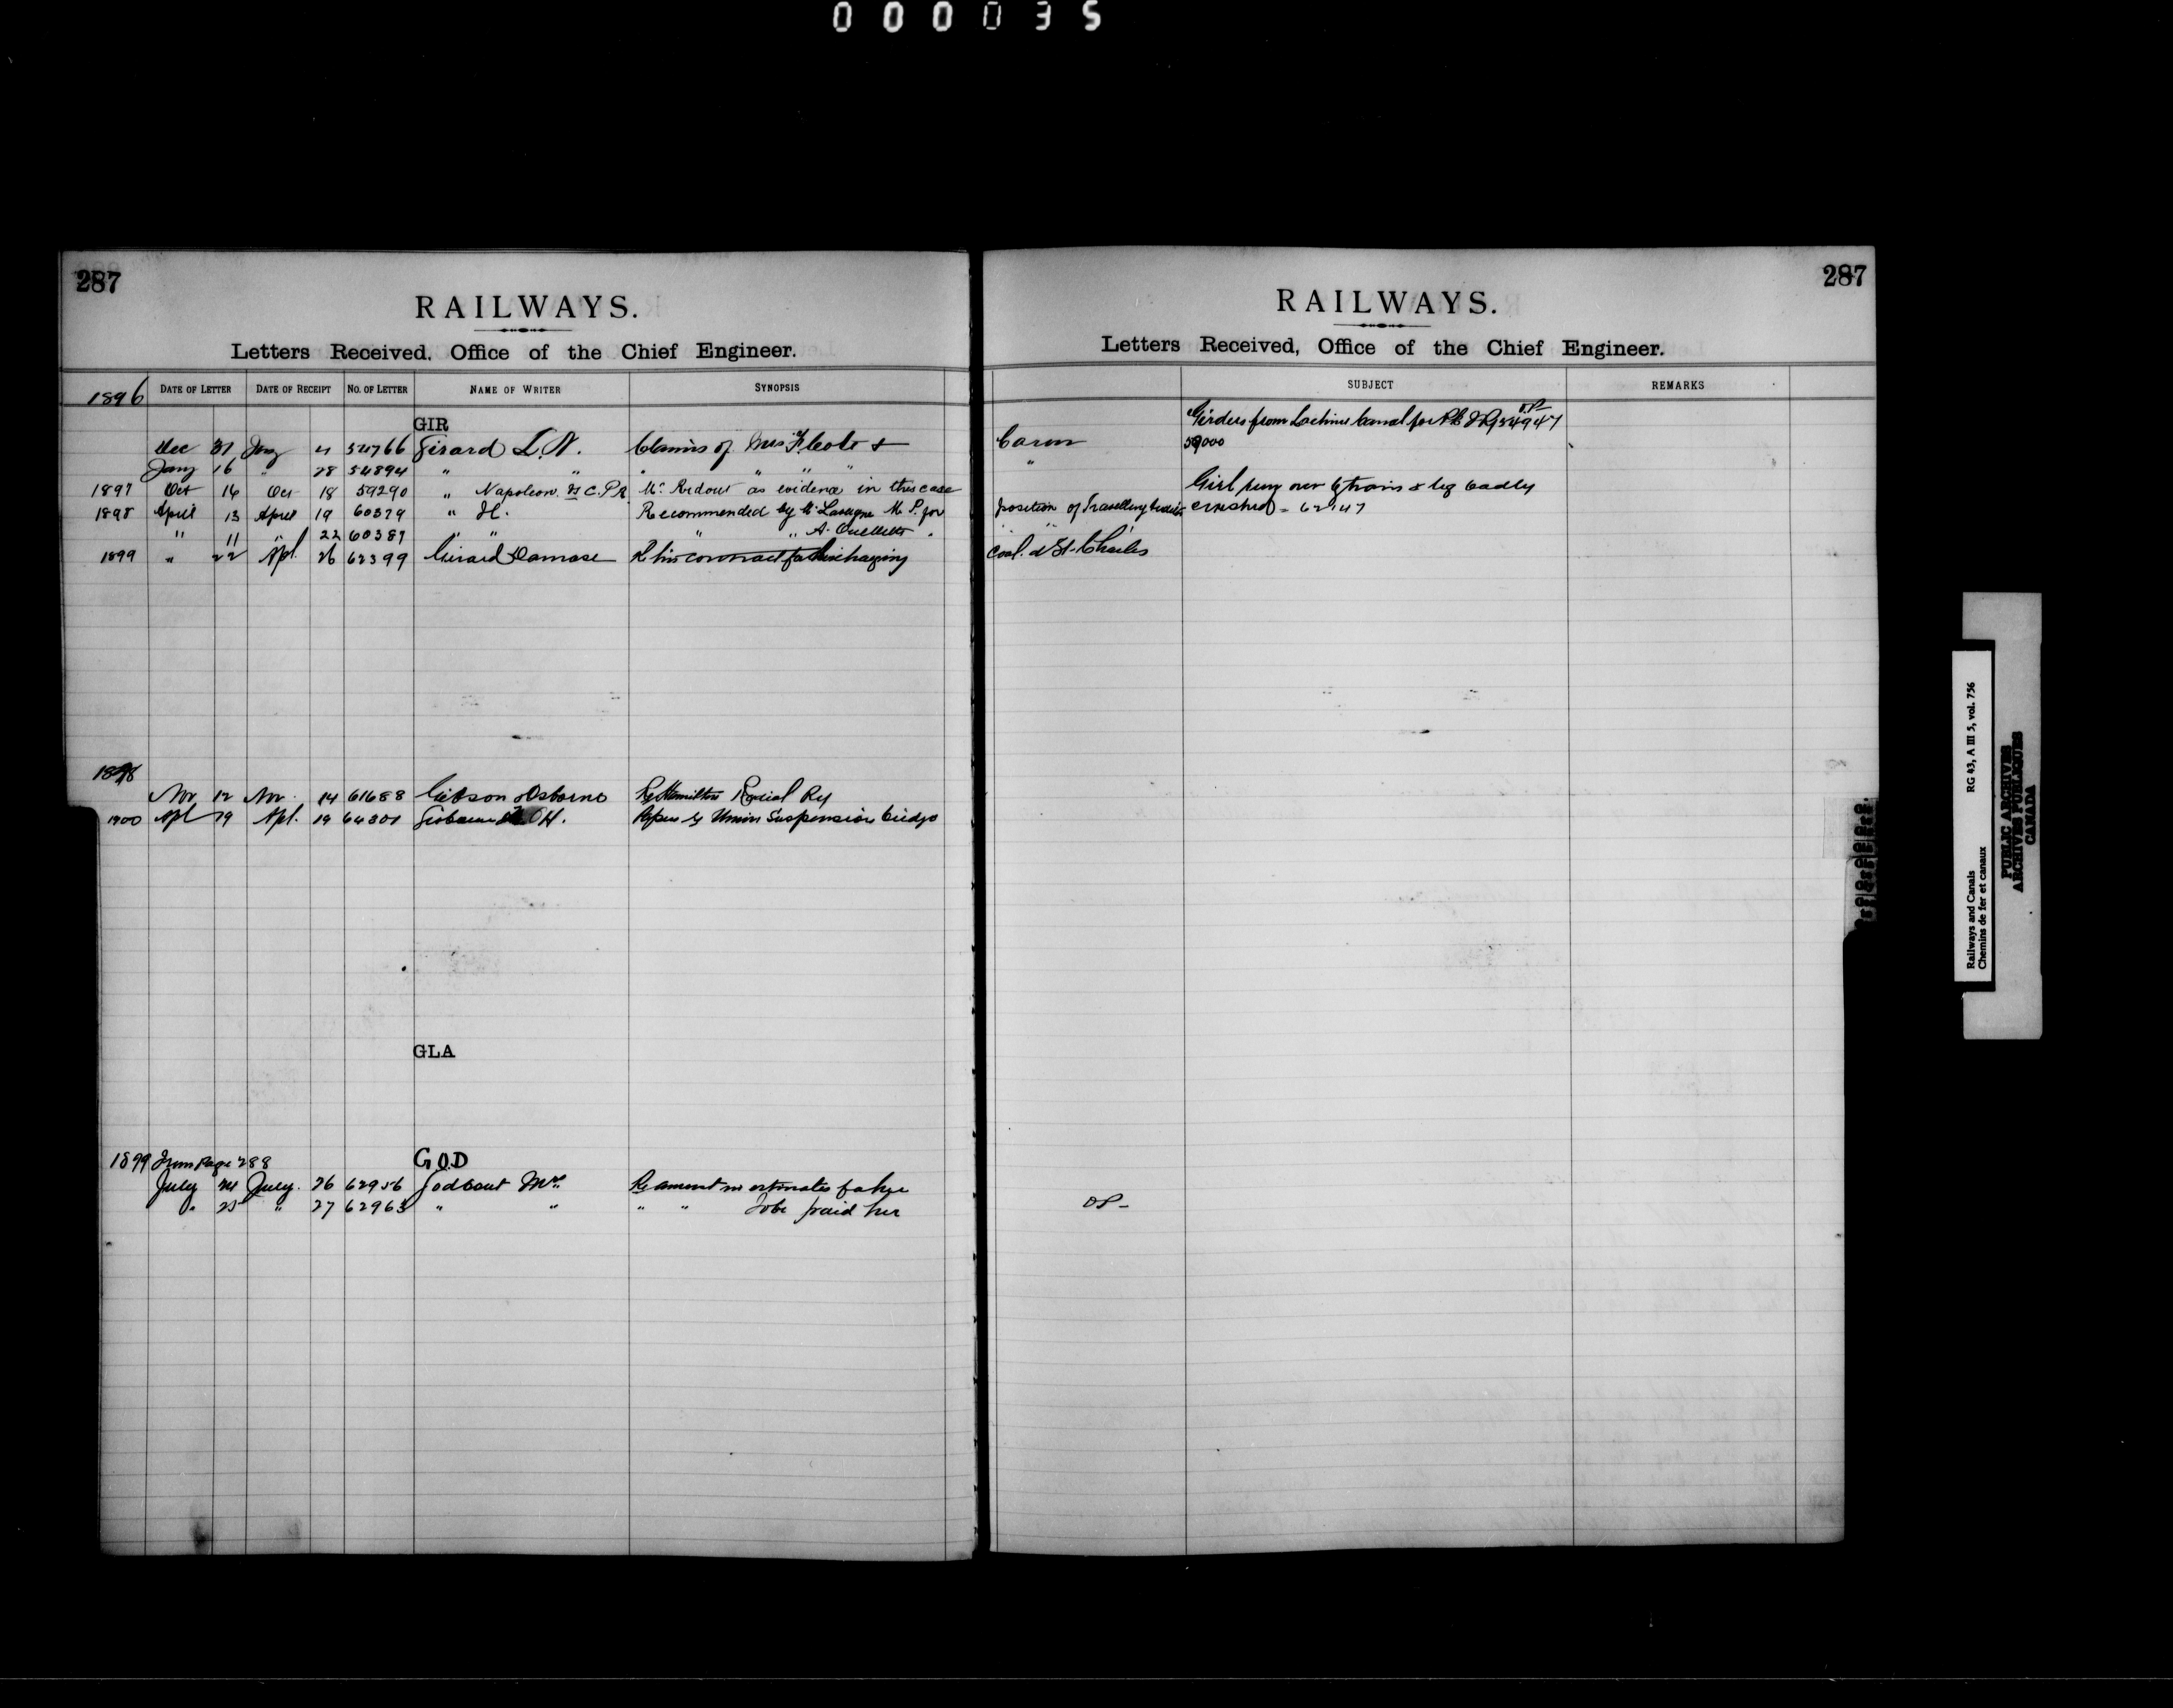 000035
287
RAILWAYS.
Letters Received, Office of the Chief Engineer.
1896 DATE OF LETTER DATE OF RECEIPT NO. OF LETTER NAME OF WRITER SYNOPSIS
GIR
Dec 31 Jany 4 54766 Girard L. N. Claims of Mrs F. Cote &
Jany 16 " 28 54894 " " " " " "
1897 Oct 16 Oct 18 59290 " Napoleon vs C.P.R. Mr Ridout as evidence in this case
1898 April 13 April 19 60379 " H. Recommended by Mr Lavergne M.P. for
" 11 " 22 60389 " " " " A. Ouellette
1899 " 22 Apl. 26 62399 Girard Damase Re his contract for discharging
1898
Nov 12 Nov. 14 61688 Gibson & Osborne Re Hamilton Radial Ry
1900 Apl 19 Apl. 19 64301 H. Union Suspension bridge
GLA
1899 From Page 288 GOD
July 24 July. 26 62956 Godbout Mrs Re amount for
" 25 " 27 62963 " " " " To be paid her
287
RAILWAYS.
Letters Received, Office of the Chief Engineer.
SUBJECT REMARKS
Girders from Lachine Canal for 54947
Caron
"
Girl run over by train & leg badly
position of Travelling crushed = 62947
Coal at St. Charles
OP-
Railways and Canals RG 43, A III 5, vol. 756
Chemins de fer et canaux
PUBLIC ARCHIVES
ARCHIVES PUBLIQUES
CANADA